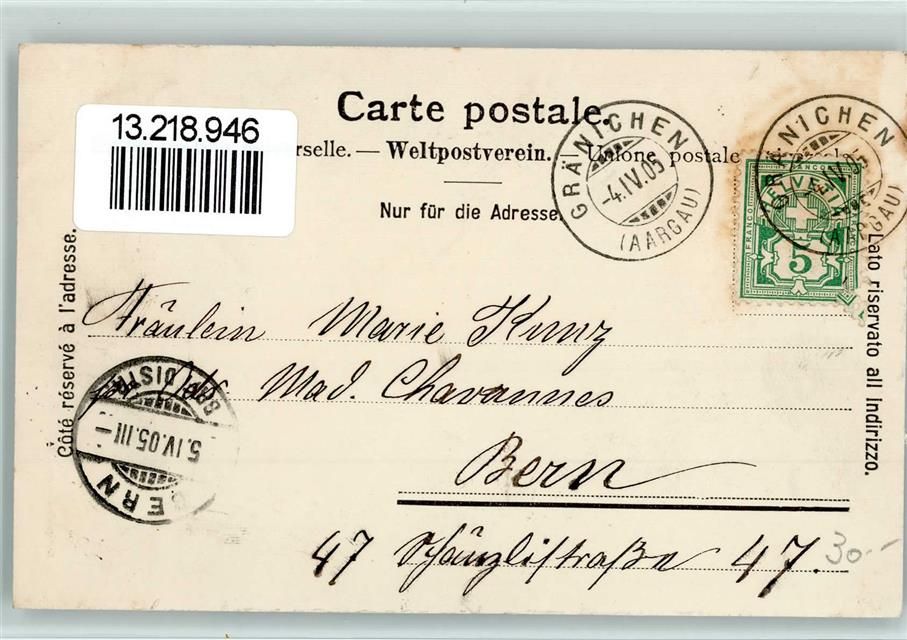 Carte postale.
13.218.946
rselle. — Weltpostverein. — Unione postale
Nur für die Adresse.
GRÄNICHEN
-4.IV.05
(AARGAU)
GRÄNICHEN
(AARGAU)
FRANCO
HELVETIA
5
Côté réservé à l'adresse.
Lato riservato all indirizzo.
Fräulein Marie Kunz
Mad. Chavannes
Bern
47 Schänzlistraße 47.
BERN
5.IV.05.III-
30.-